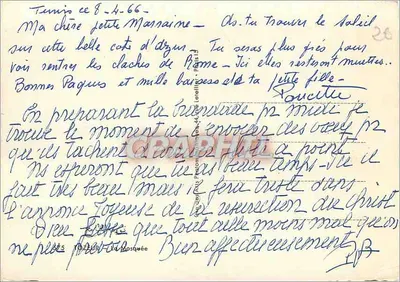 Tunis ce 8-4-66-
Ma chère petite Marraine - As-tu trouvé le soleil
sur cette belle cote d'azur Tu seras plus près pour
voir rentrer les cloches de Rome - Ici elles resteront muettes..
Bonnes Paques et mille baisers de ta petite fille -
En préparant la brandade pr midi je
trouve le moment de envoyer des voeux pr
qu'ils tachent d'arriver à point
Ns esperont que tu as beau temps - Ici il
fait très beau mais il fera triste dans
l'annonce Joyeuse de la resurection du Christ
Dieu fasse que tout aille moins mal qu'on
ne peut prévoir. Bien affectueusement